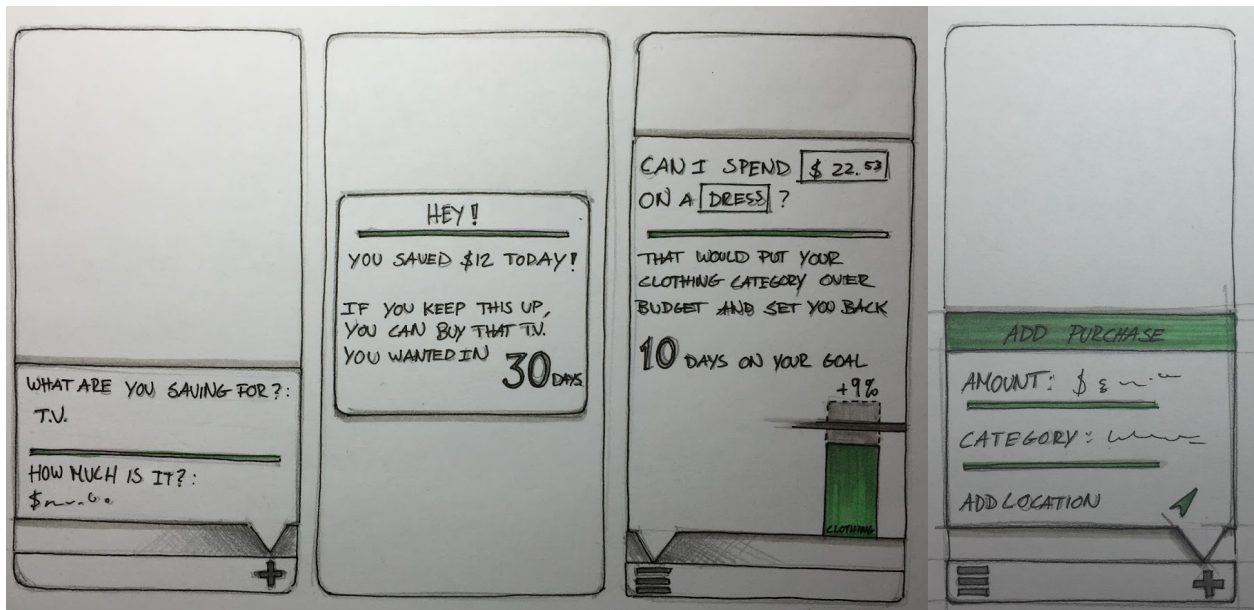 WHAT ARE YOU SAVING FOR?:
T.V.
HOW MUCH IS IT?:
$
HEY!
YOU SAVED $12 TODAY!
IF YOU KEEP THIS UP,
YOU CAN BUY THAT T.V.
YOU WANTED IN 30 DAYS
CAN I SPEND $ 22.53
ON A DRESS ?
THAT WOULD PUT YOUR
CLOTHING CATEGORY OVER
BUDGET AND SET YOU BACK
10 DAYS ON YOUR GOAL
+9%
CLOTHING
ADD PURCHASE
AMOUNT: $
CATEGORY:
ADD LOCATION